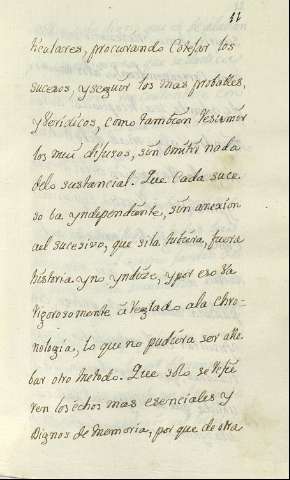 11
ticulares, procurando Cotejar los
sucesos, y seguir los mas probables,
y Veridicos, como tambien Resumir
los mui difusos, sin omitir nada
delo sustancial. Que Cada suce-
so va yndependente, sin anexion
ael sucesivo, que sila tubiera, fuera
historia y no yndize, y por eso va
rigorosamente arreglado ala Chro-
nologia, lo que no pudiera ser
otro Metodo. Que solo se refie
ren los echos mas esenciales y
Dignos de memoria, por que de otra